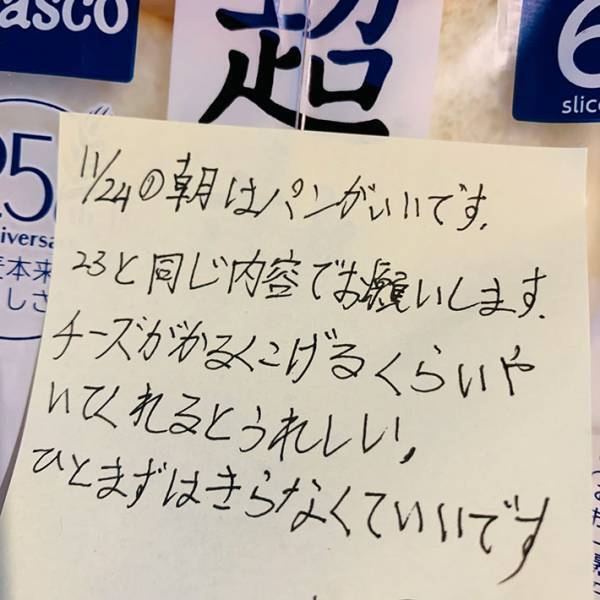 asco
超
6
slic
25
iversa
麦本来
しさ
11/24の朝はパンがいいです.
23と同じ内容でお願いします.
チーズがかるくこげるくらいや
いてくれるとうれしい,
ひとまずはきらなくていいです